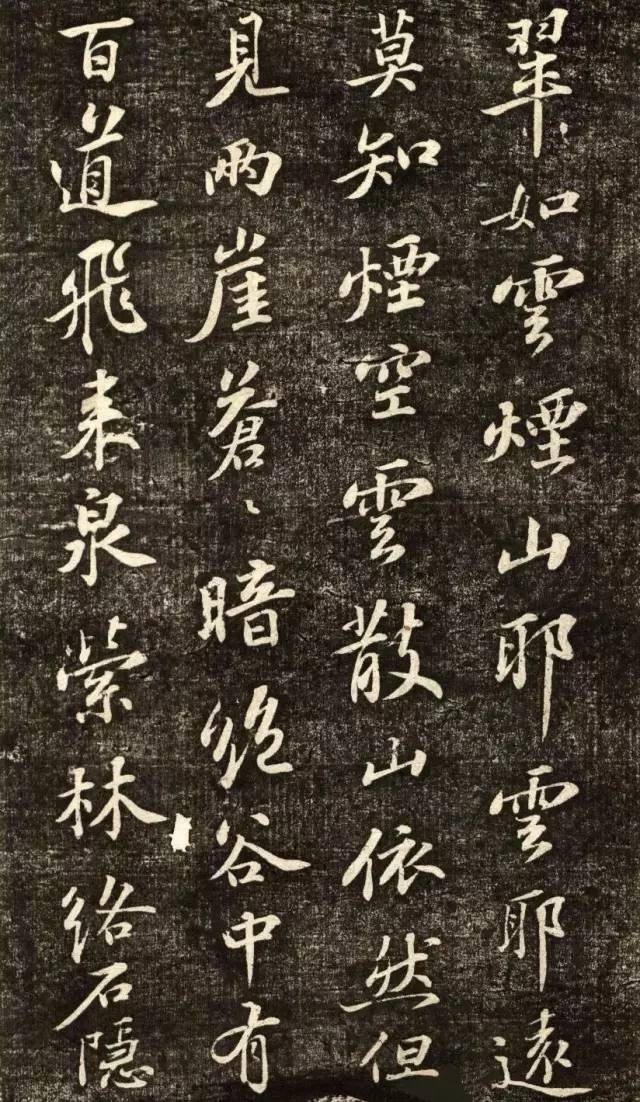 翠如雲煙山耶雲耶遠
莫知煙空雲散山依然但
見兩崖蒼〻暗絕谷中有
百道飛来泉縈林絡石隱